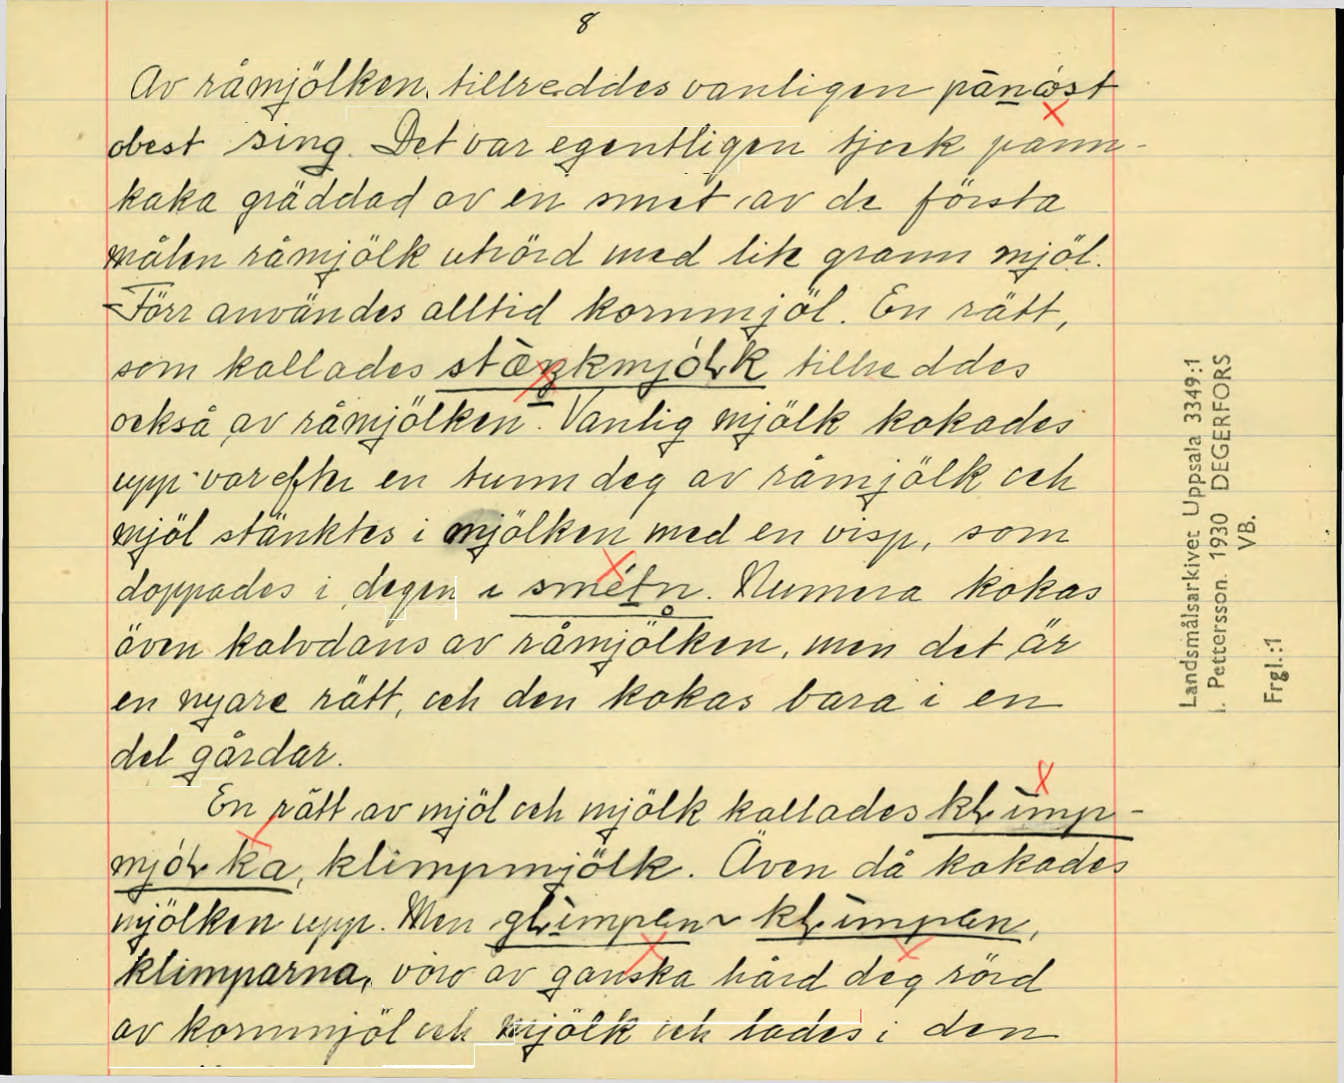 8
Av råmjölken tillreddes vanligen pānɷst
obest sing. Det var egentligen tjock pann-
kaka gräddad av en smet av de första
målen råmjölk utrörd med lite grann mjöl.
Förr användes alltid kornmjöl. En rätt,
som kallades stæŋkmjólk tillreddes
också av råmjölken. Vanlig mjölk kokades
upp varefter en tunn deg av råmjölk och
mjöl stänktes i mjölken med en visp, som
doppades i degen i smétn. Numera kokas
även kalvdans av råmjölken, men det är
en nyare rätt, och den kokas bara i en
del gårdar.
En rätt av mjöl och mjölk kallades klimp-
mjólka, klimpmjölk. Även då kokades
mjölken upp. Men glimpan ~ klimpan,
klimparna, voro av ganska hård deg rörd
av kornmjöl och mjölk och lades i den
Landsmålsarkivet Uppsala 3349:1
I. Pettersson. 1930 DEGERFORS
VB.
Frgl.:1